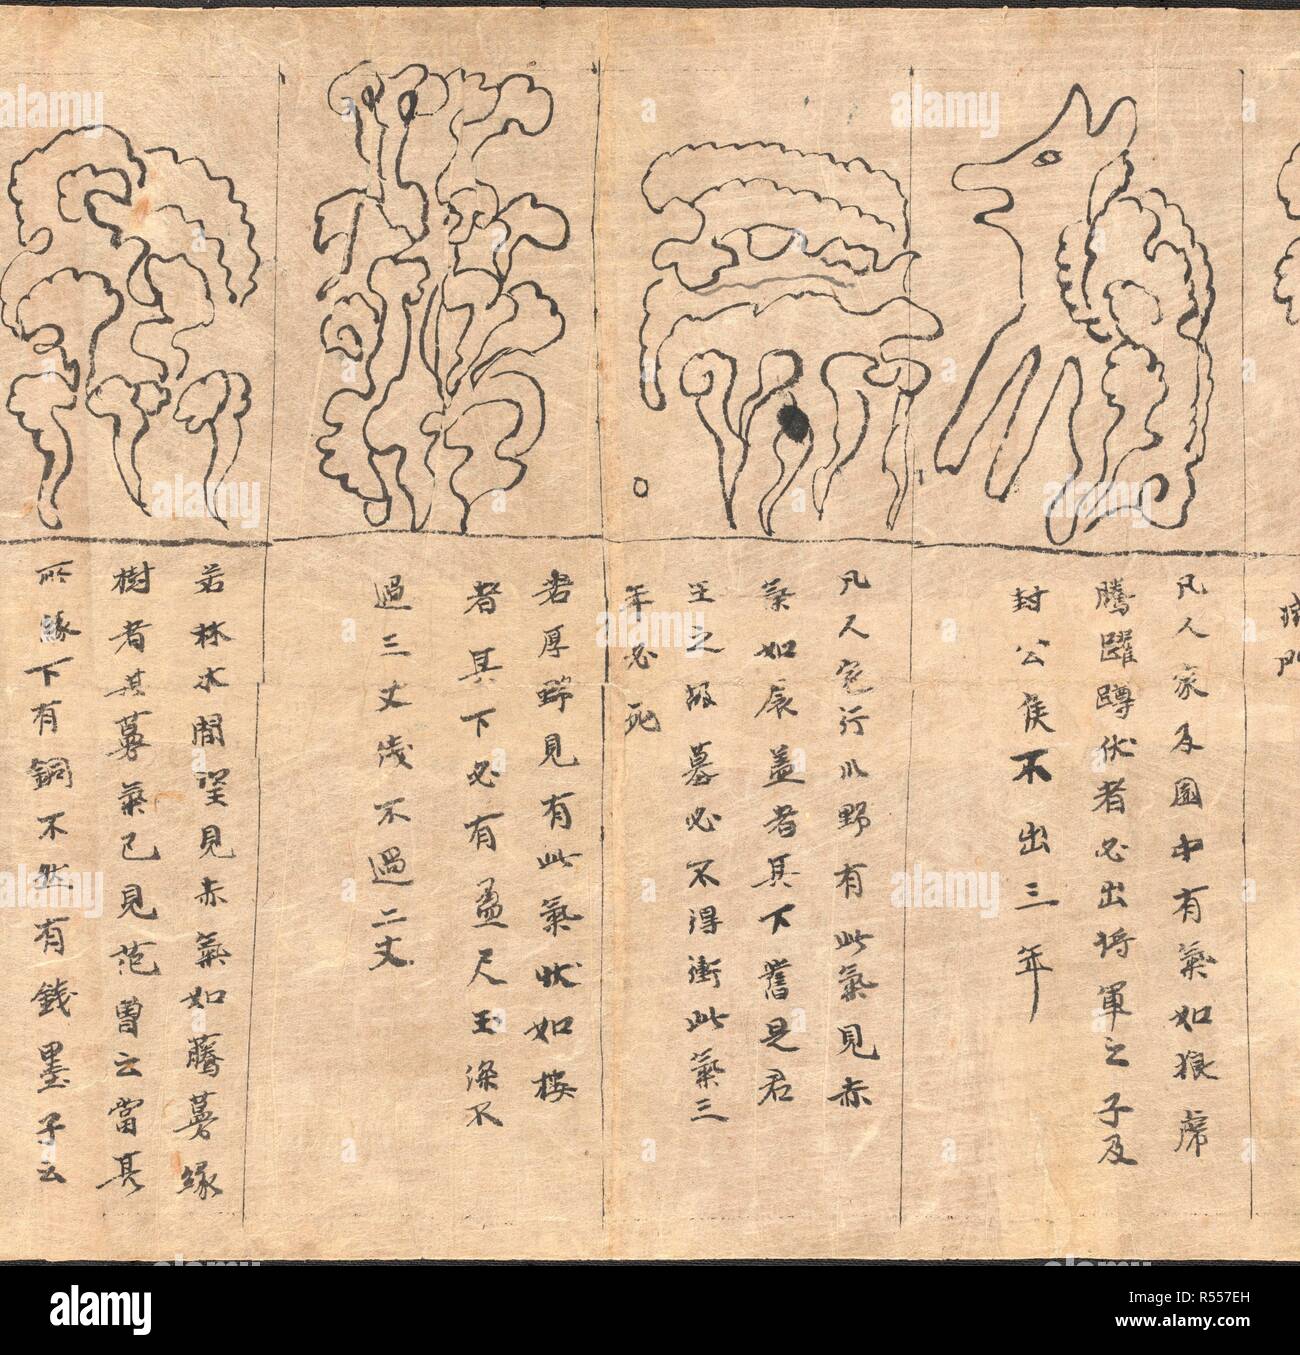 凡人家及園中有氣如狼虎
騰躍蹲伏者必出將軍之子及
封公侯不出三年
凡人冤行川野有此氣見赤
氣如辰蓋者其下舊是君
王之墓必不得衝此氣三
年必死
若厚野見有此氣狀如樓
者其下必有盈尺玉深不
過三丈淺不過二丈
若林木間望見赤氣如騰蔓緣
樹者其蔓氣已見范曾云當其
所緣下有銅不然有錢墨子云
alamy
Image ID: R557EH
www.alamy.com